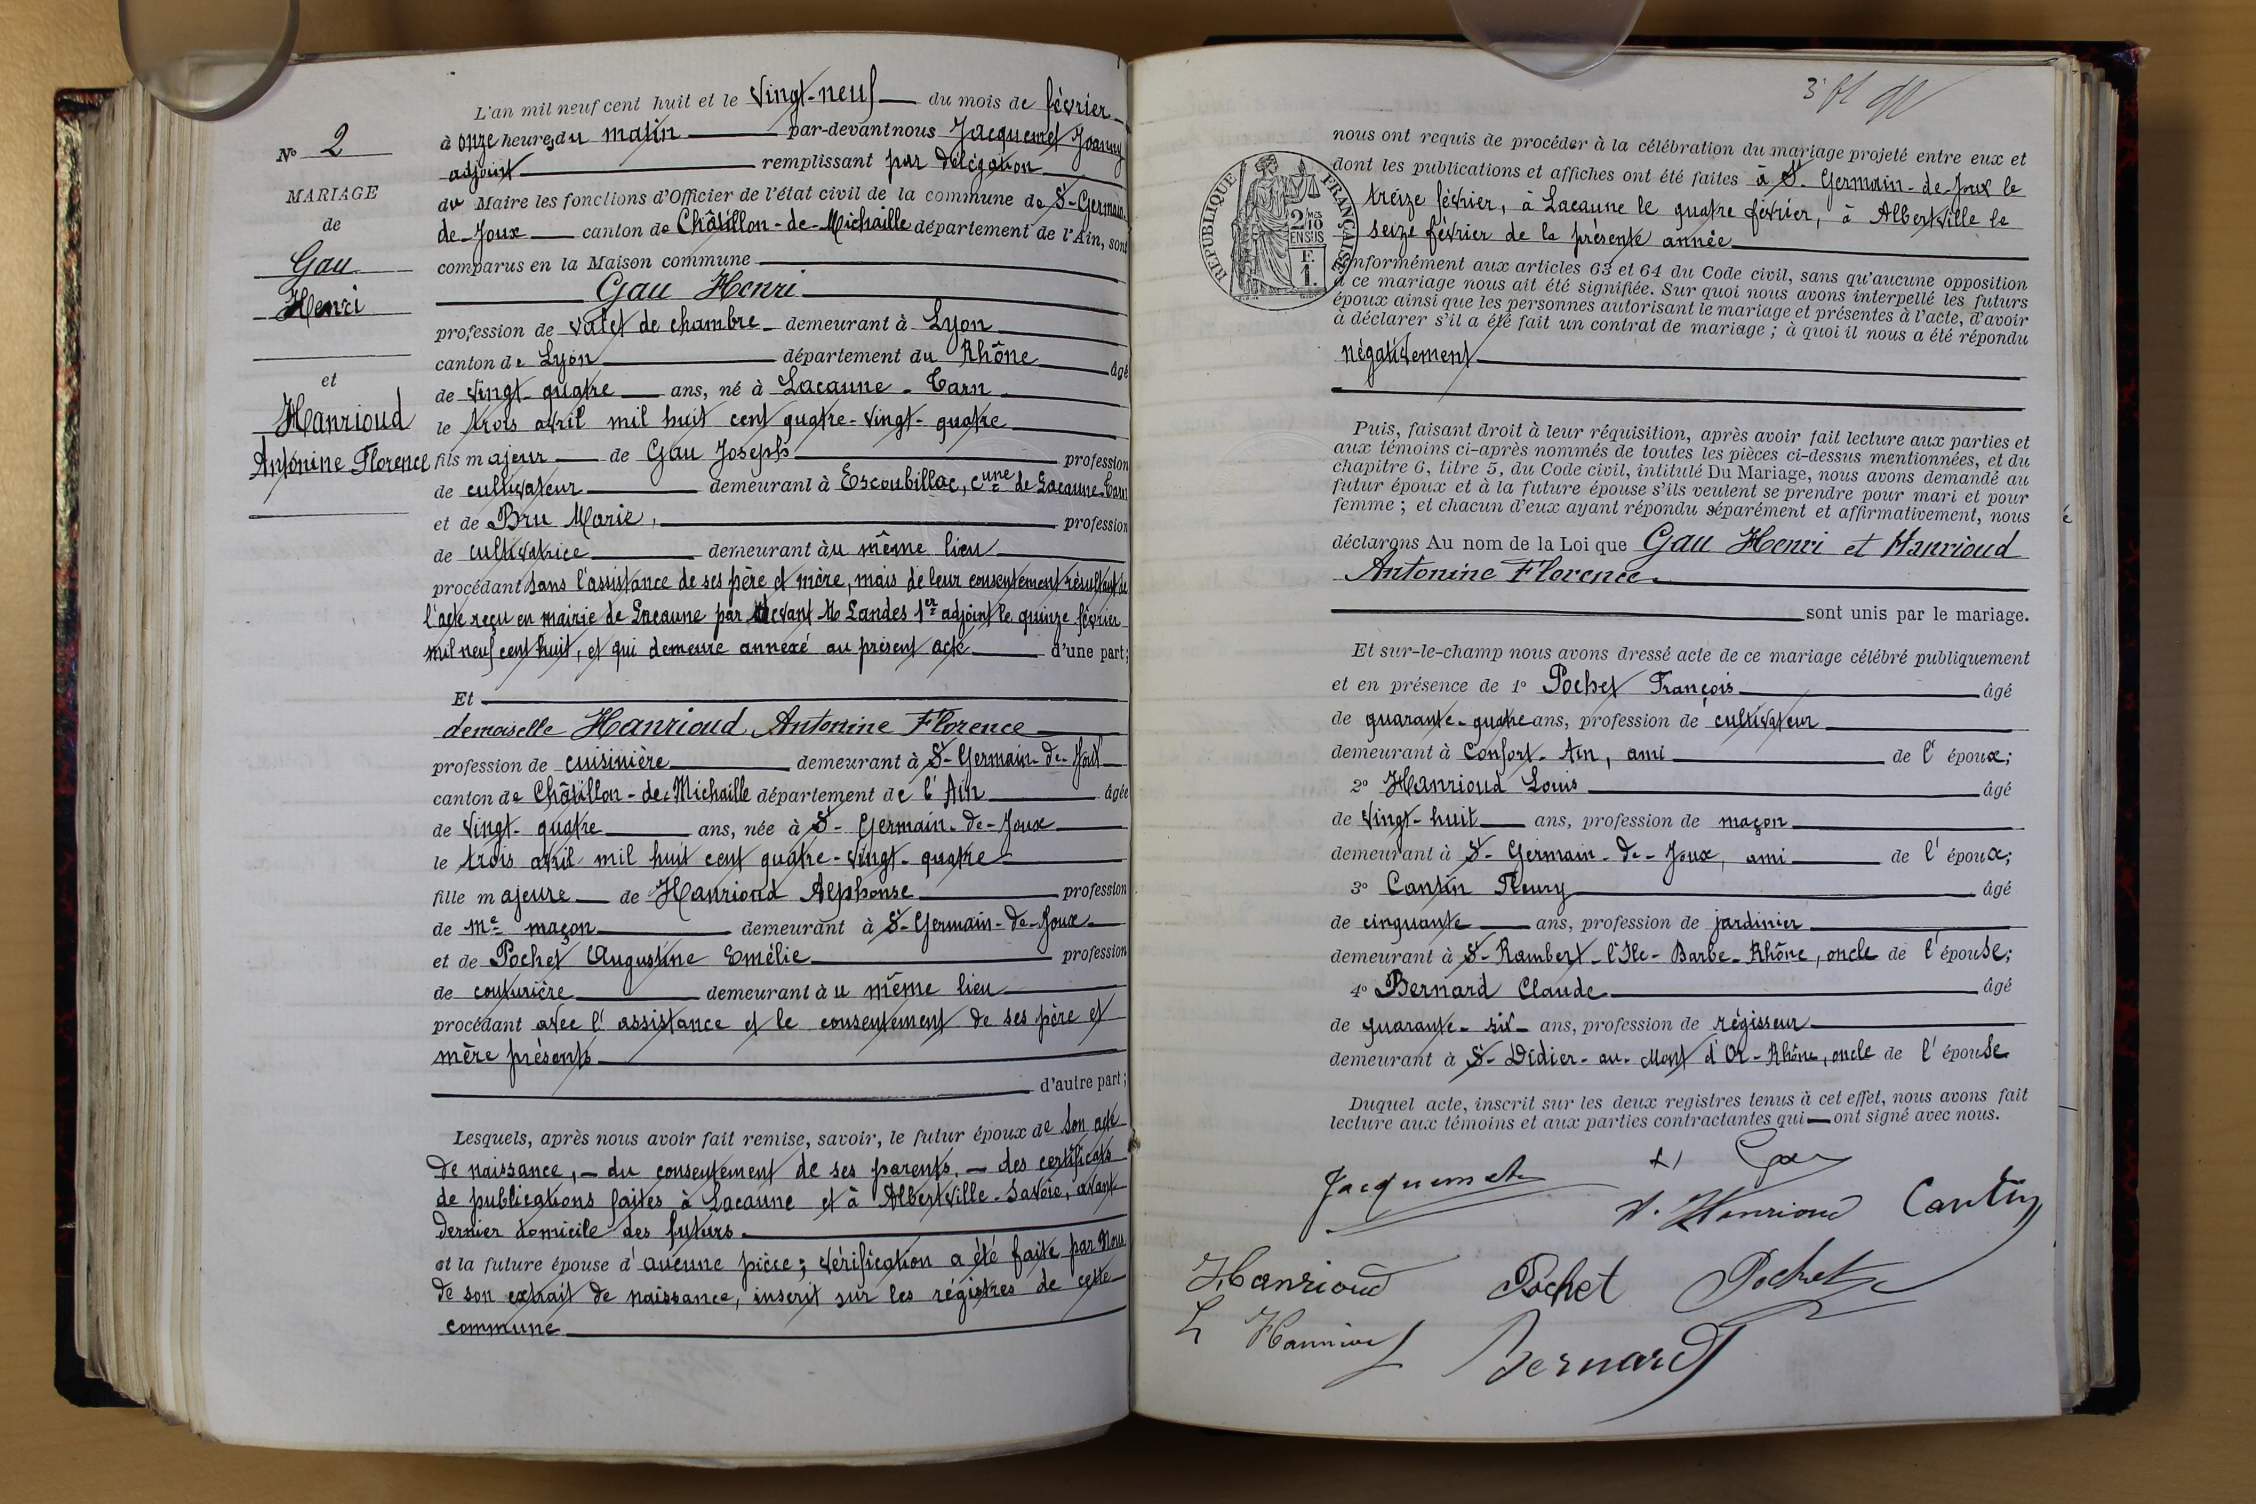 L'an mil neuf cent huit et le vingt-neuf du mois de février
à onze heures du matin par-devant nous Jacquemet Joanny
adjoint remplissant par délégation
du Maire les fonctions d'Officier de l'état civil de la commune de St-Germain-
de-Joux canton de Châtillon-de-Michaille département de l'Ain, sont
comparus en la Maison commune
Gau Henri
profession de valet de chambre demeurant à Lyon
canton de Lyon département du Rhône âgé
de vingt-quatre ans, né à Lacaune - Tarn
le trois avril mil huit cent quatre-vingt-quatre
fils majeur de Gau Joseph profession
de cultivateur demeurant à Escoubillac, cune de Lacaune-Tarn
et de Bru Marie, profession
de cultivatrice demeurant au même lieu
procédant sans l'assistance de ses père et mère, mais de leur consentement résultant de
l'acte reçu en mairie de Lacaune par devant M. Landes 1er adjoint le quinze février
mil neuf cent huit, et qui demeure annexé au présent acte d'une part;
Et
demoiselle Hanrioud Antonine Florence
profession de cuisinière demeurant à St-Germain-de-Joux
canton de Châtillon-de-Michaille département de l'Ain âgée
de vingt-quatre ans, née à St-Germain-de-Joux
le trois avril mil huit cent quatre-vingt-quatre
fille majeure de Hanrioud Alphonse profession
de me maçon demeurant à St-Germain-de-Joux
et de Pochet Augustine Emélie profession
de couturière demeurant au même lieu
procédant avec l'assistance et le consentement de ses père et
mère présents
d'autre part;
Lesquels, après nous avoir fait remise, savoir, le futur époux de son acte
de naissance, - du consentement de ses parents, - des certificats
de publications faites à Lacaune et à Albertville-Savoie, avant
dernier domicile des futurs.
et la future épouse d'aucune pièce; vérification a été faite par Nous
de son extrait de naissance, inscrit sur les régistres de cette
commune
No 2
MARIAGE
de
Gau
Henri
et
Hanrioud
Antonine Florence
nous ont requis de procéder à la célébration du mariage projeté entre eux et
dont les publications et affiches ont été faites à St-Germain-de-Joux le
treize février, à Lacaune le quatre février, à Albertville le
seize février de la présente année
conformément aux articles 63 et 64 du Code civil, sans qu'aucune opposition
à ce mariage nous ait été signifiée. Sur quoi nous avons interpellé les futurs
époux ainsi que les personnes autorisant le mariage et présentes à l'acte, d'avoir
à déclarer s'il a été fait un contrat de mariage; à quoi il nous a été répondu
négativement
RÉPUBLIQUE FRANÇAISE
2/10
EN SUS
F.
1.
Puis, faisant droit à leur réquisition, après avoir fait lecture aux parties et
aux témoins ci-après nommés de toutes les pièces ci-dessus mentionnées, et du
chapitre 6, titre 5, du Code civil, intitulé Du Mariage, nous avons demandé au
futur époux et à la future épouse s'ils veulent se prendre pour mari et pour
femme; et chacun d'eux ayant répondu séparément et affirmativement, nous
déclarons Au nom de la Loi que Gau Henri et Hanrioud
Antonine Florence
sont unis par le mariage.
Et sur-le-champ nous avons dressé acte de ce mariage célébré publiquement
et en présence de 1° Pochet François âgé
de quarante-quatre ans, profession de cultivateur
demeurant à Confort-Ain, ami de l'époux;
2° Hanrioud Louis âgé
de vingt-huit ans, profession de maçon
demeurant à St-Germain-de-Joux, ami de l'époux;
3° Cantin Fleury âgé
de cinquante ans, profession de jardinier
demeurant à St-Rambert-l'Ile-Barbe-Rhône, oncle de l'épouse;
4° Bernard Claude âgé
de quarante-six ans, profession de régisseur
demeurant à St-Didier-au-Mont d'Or-Rhône, oncle de l'épouse
Duquel acte, inscrit sur les deux registres tenus à cet effet, nous avons fait
lecture aux témoins et aux parties contractantes qui ont signé avec nous.
Jacquemet Gau
A. Hanrioud Cantin
Hanrioud Pochet Pochet
L Hanrioud Bernard